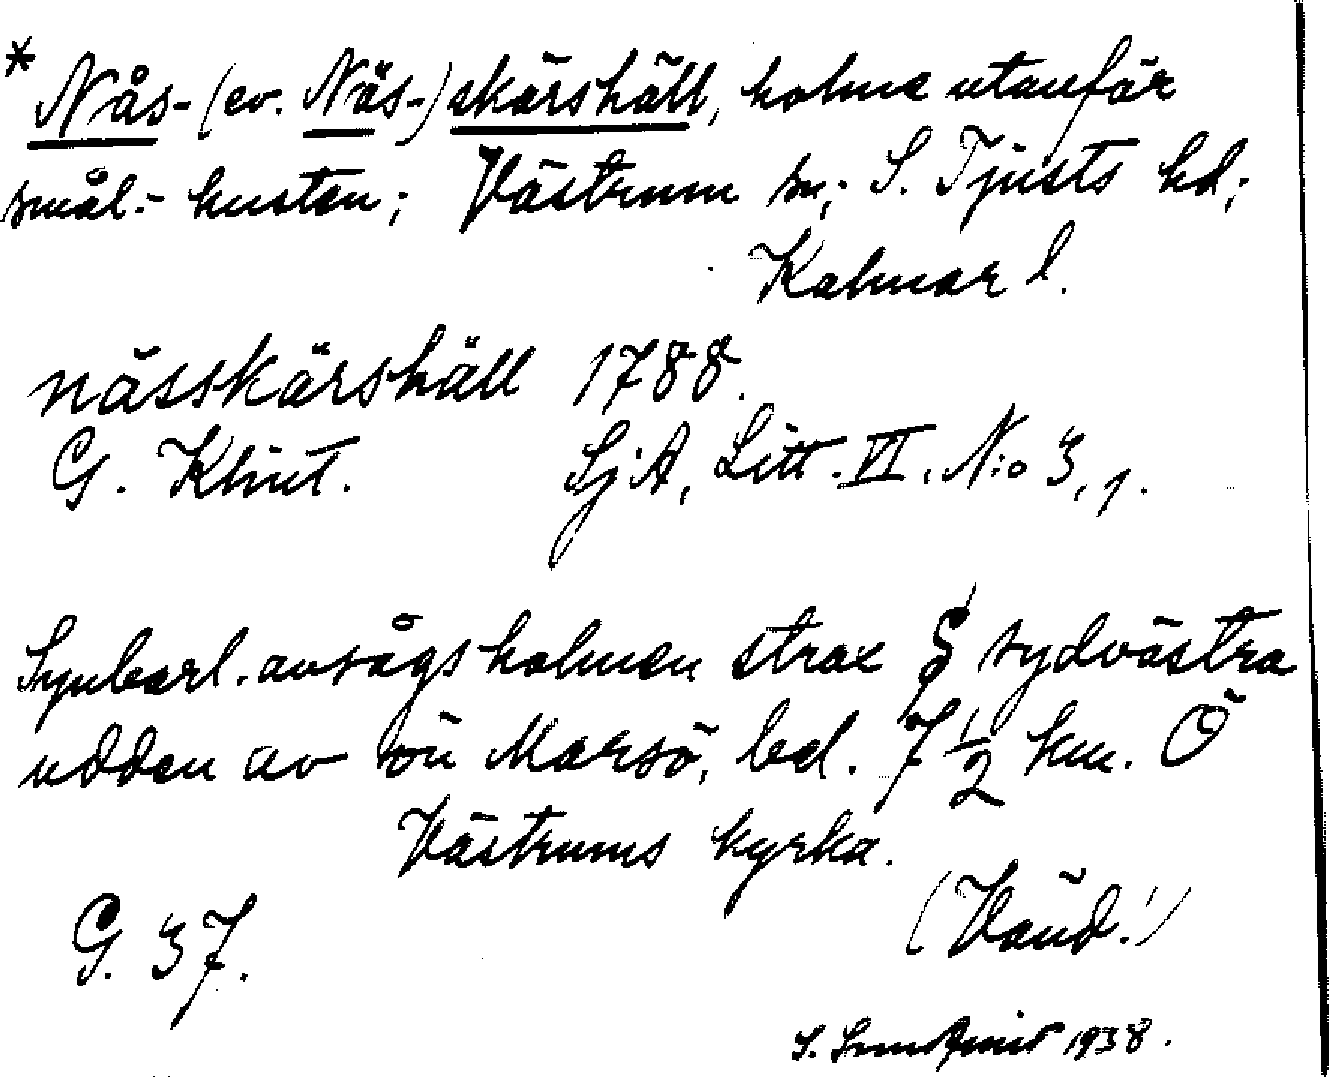 * Nås- (ev. Näs-) skärshäll, holme utanför
smål.- kusten; Västrum sn; S. Tjusts hd;
Kalmar l.
nässkärshäll 1788.
G. Klint. SjA, Litt. VI. N:o 3, 1.
Synbarl. avsågs holmen strax S sydvästra
udden av ön Marsö, bel. 7 1/2 km. Ö
Västrums kyrka.
G. 37. (Vänd!)
S. 1938.